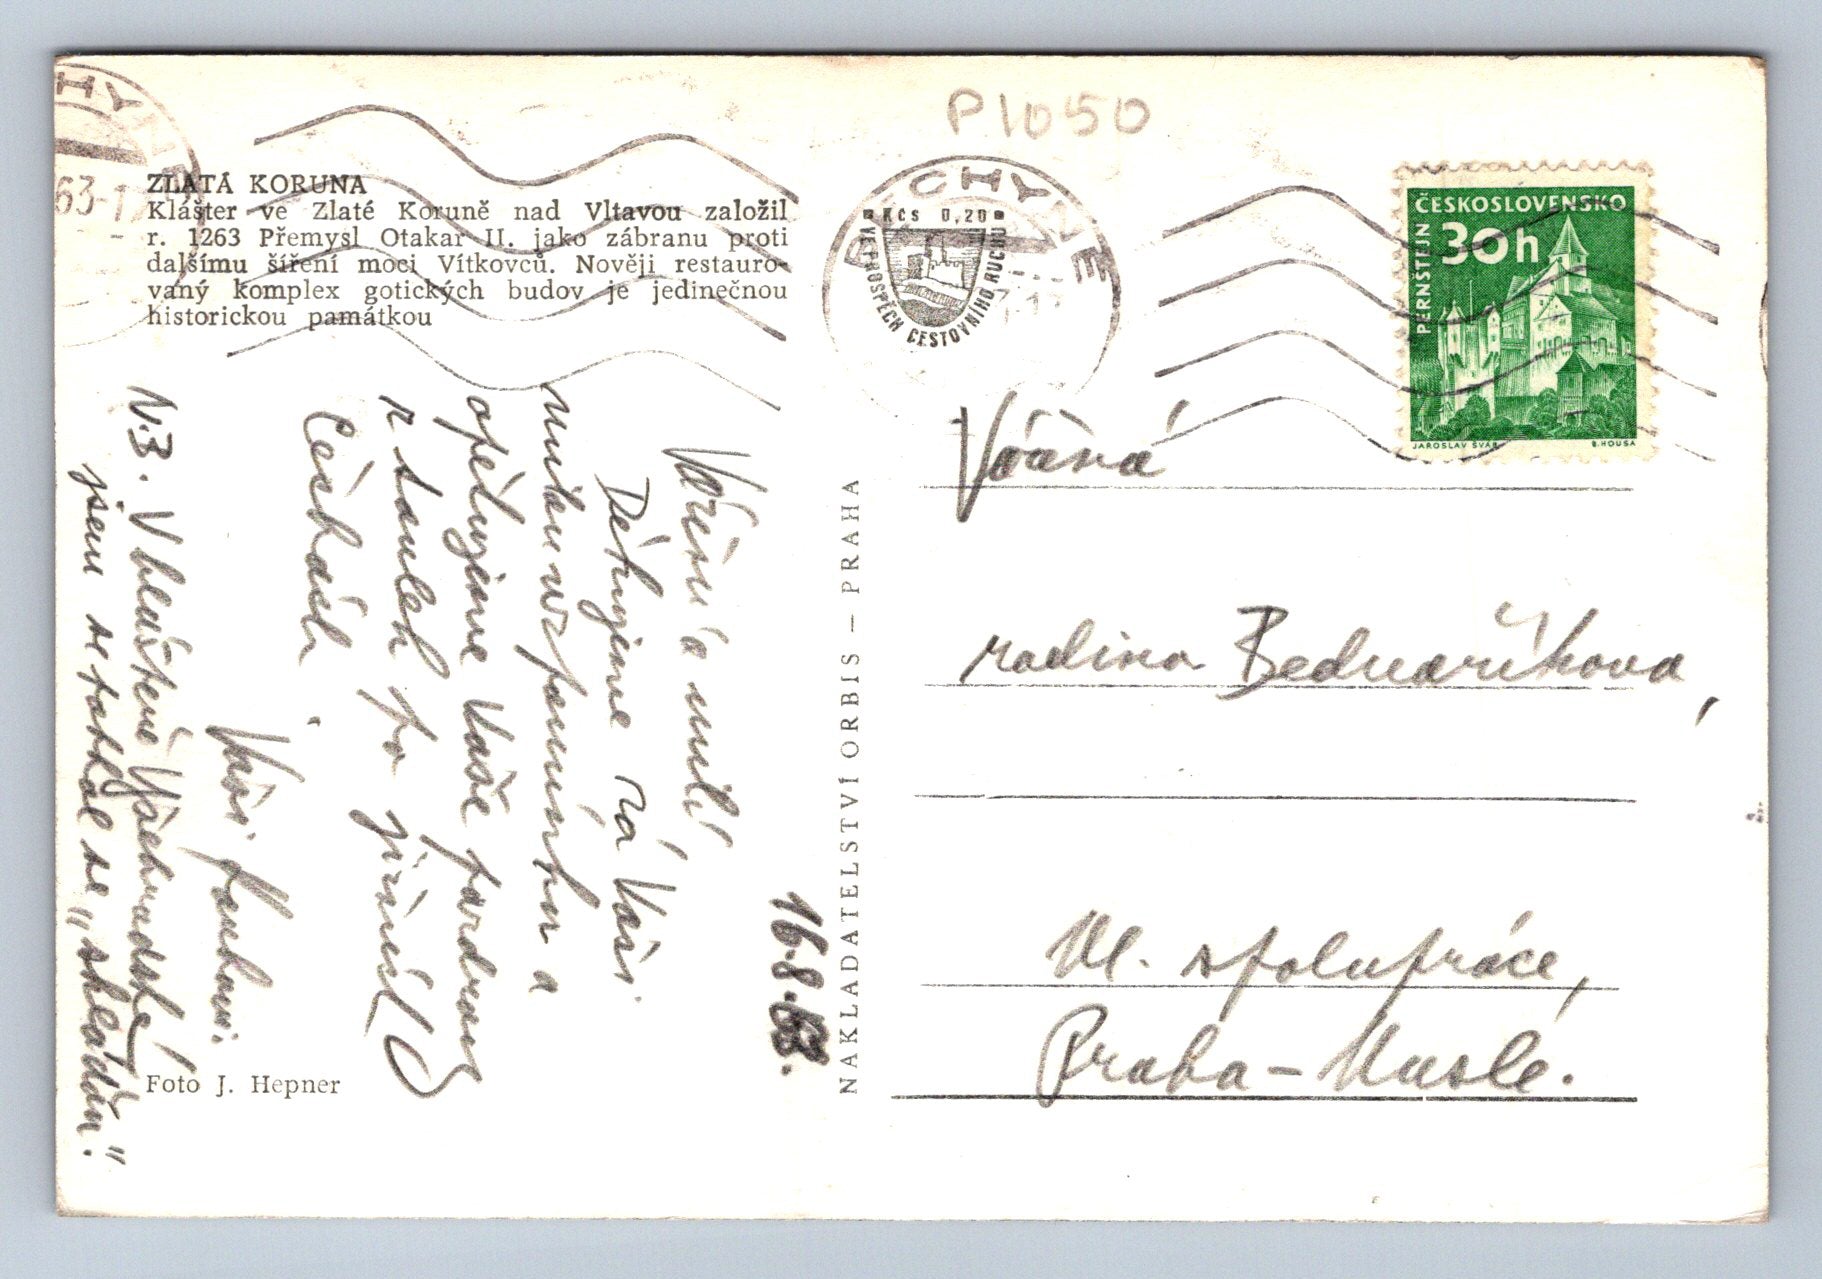 P1050
ZLATÁ KORUNA
Klášter ve Zlaté Koruně nad Vltavou založil
r. 1263 Přemysl Otakar II. jako zábranu proti
dalšímu šíření moci Vítkovců. Nověji restauro-
vaný komplex gotických budov je jedinečnou
historickou památkou
BECHYNĚ
Kčs 0,20
VE PROSPĚCH CESTOVNÍHO RUCHU
ČESKOSLOVENSKO
30h
PERNŠTEJN
JAROSLAV ŠVÁB
B. HOUSA
16.8.63.
Vážení a milí
Děkujeme za Vaši
milou vzpomínku a
opětujeme Vaše pozdravy
z toulek po jižních
Čechách.
Vaši
N.B. V klenštené Vyšehradské
jsem se toskal se
Foto J. Hepner
NAKLADATELSTVÍ ORBIS – PRAHA
Vážená
rodina Bednaříkova,
Ul. spolupráce,
Praha – Nusle.